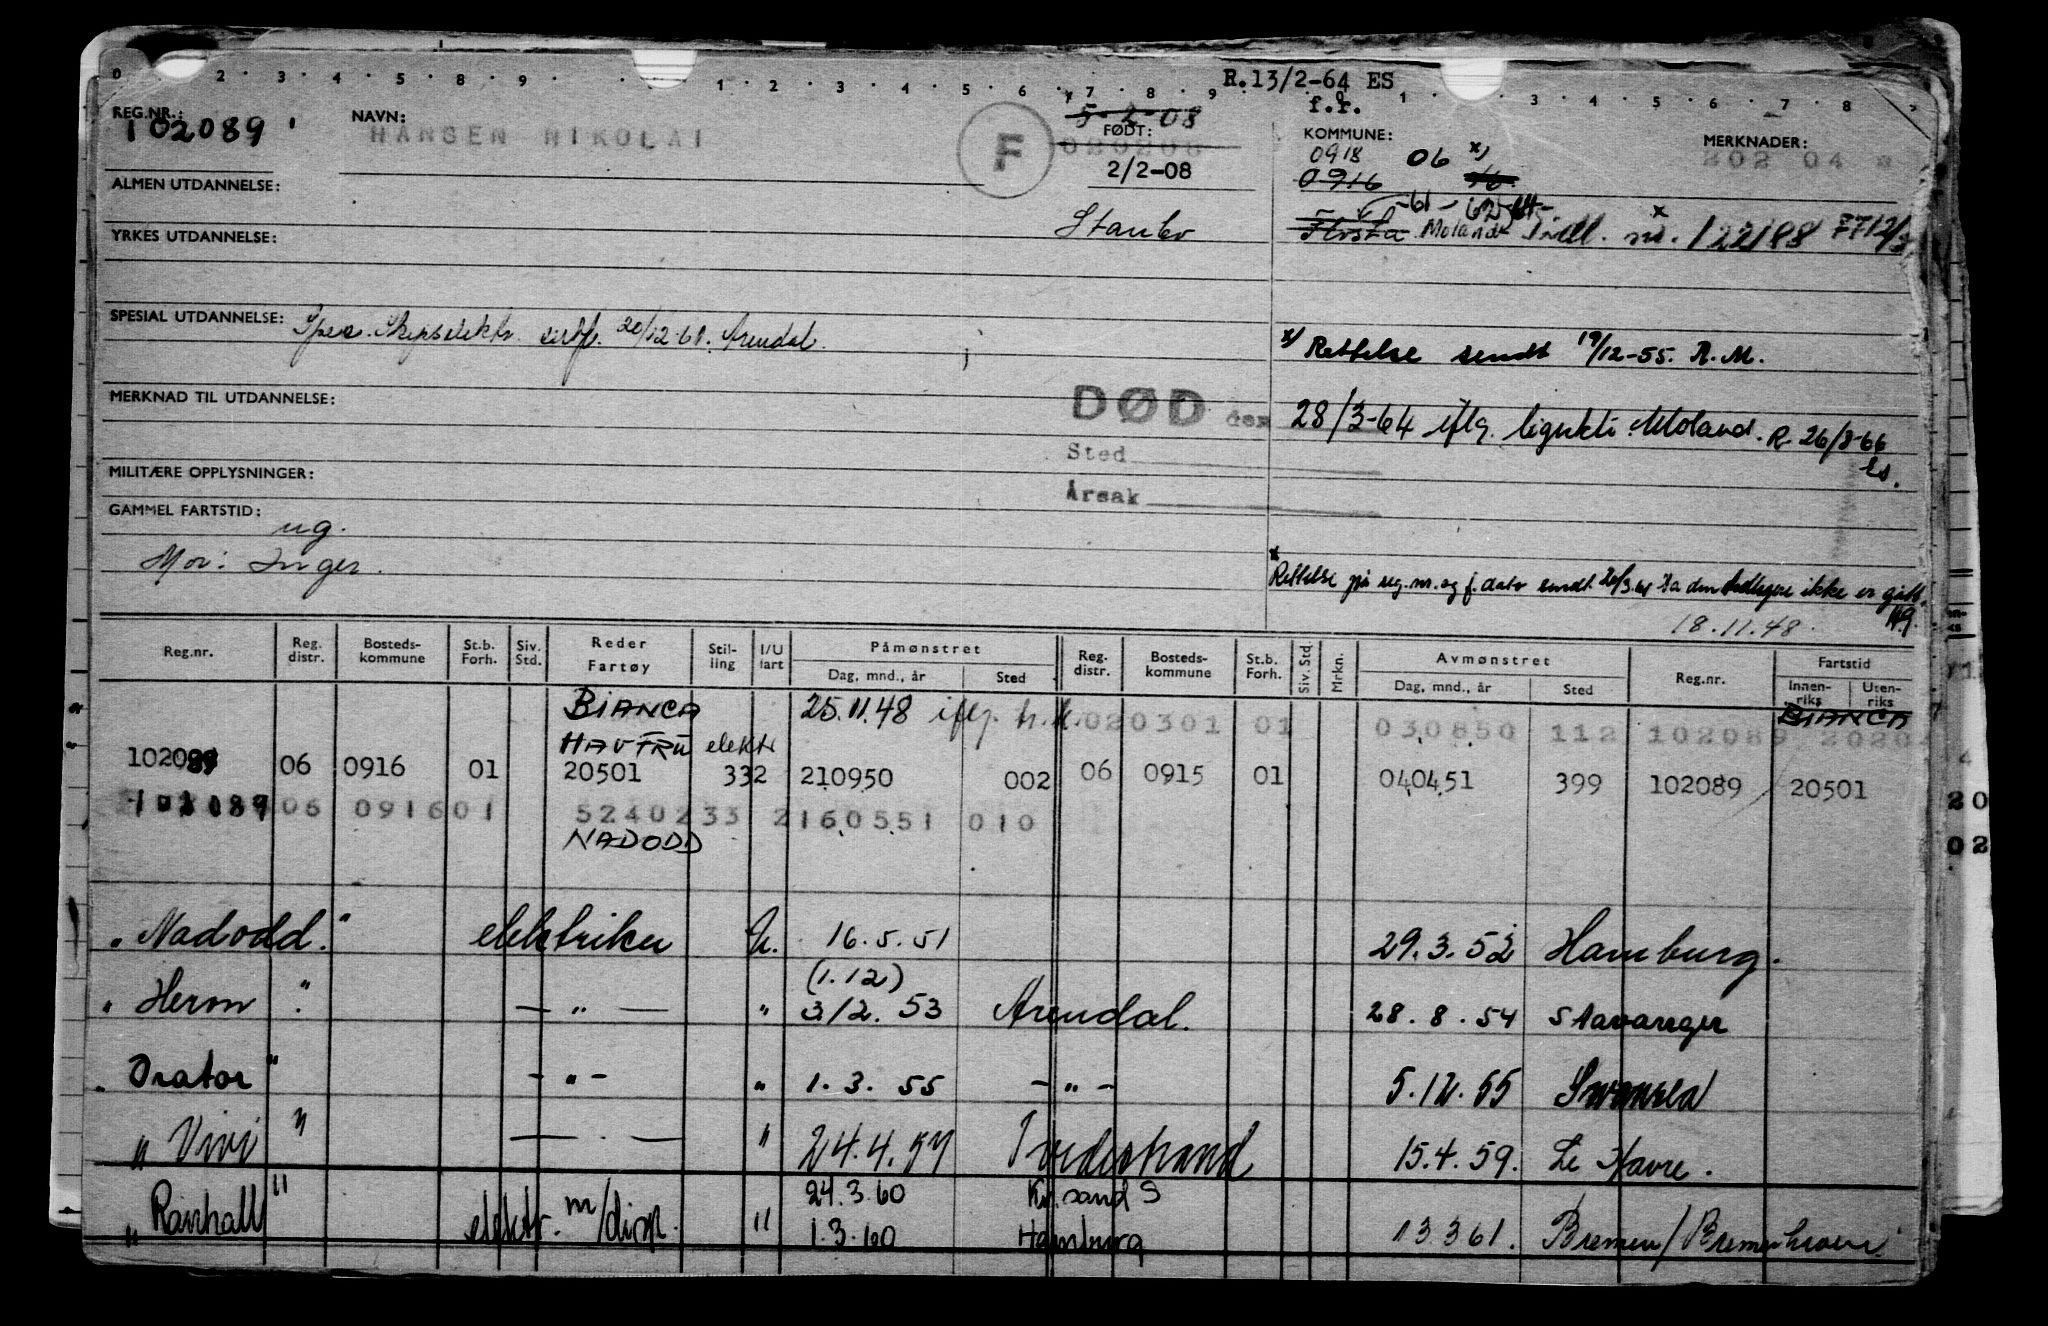 0 2 3 4 5 8 9 1 2 3 4 5 6 7 8 9 R.13/2-64 ES 1 3 4 5 6 7 8
f.r.
REG.NR.: 102089 NAVN: HANSEN NIKOLAI F 5-2-08 FØDT: 020208 2/2-08
KOMMUNE: 0918 06 x) MERKNADER: 202 04
0916 16
ALMEN UTDANNELSE:
-61-
YRKES UTDANNELSE: Stanbo Flosta Moland Indl. nr. 122188
SPESIAL UTDANNELSE: Spes. Skipselektr. sertf. 20/12-61. Arendal.
x) Rettelse sendt 19/12-55. R.M.
MERKNAD TIL UTDANNELSE:
DØD den 28/3-64 iflg. lignkti Moland. R. 26/8-66
Es.
Sted
MILITÆRE OPPLYSNINGER:
Årsak
GAMMEL FARTSTID: ug.
Mor: Inger.
x Rettelse på reg.nr. og f.dato sendt 20/3.61 da den tidligere ikke er gitt.
HG.
18.11.48.
Reg.nr. Reg. distr. Bosteds-kommune St.b. Forh. Siv. Std. Reder Fartøy Stil-ling I/U fart Påmønstret Dag, mnd., år Sted Reg. distr. Bosteds-kommune St.b. Forh. Siv. Std. Mrkn. Avmønstret Dag, mnd., år Sted Reg.nr. Fartstid Innen-riks Uten-riks
BIANCA 25.11.48 iflg. h.k. 020301 01 030850 112 102089 2020 BIANCA
HAVFRU elektr
102089 06 0916 01 20501 332 210950 002 06 0915 01 040451 399 102089 20501
102089 06 0916 01 5240233 2160551 010
NADODD
"Nadodd." elektriker U. 16.5.51 29.3.52 Hamburg.
(1.12)
"Herm" — " — " 3/2.53 Arendal. 28.8.54 Stavanger
"Orator" - " - " 1.3.55 - " - 5.12.55 Swansea
"Vivi" — . — " 24.4.57 Tvedestrand 15.4.59. Le Havre.
24.3.60 Kr.sand S
"Ranhall" elektr. m/disp. " 1.3.60 Hamburg 13.3.61. Bremen/Bremerhaven.